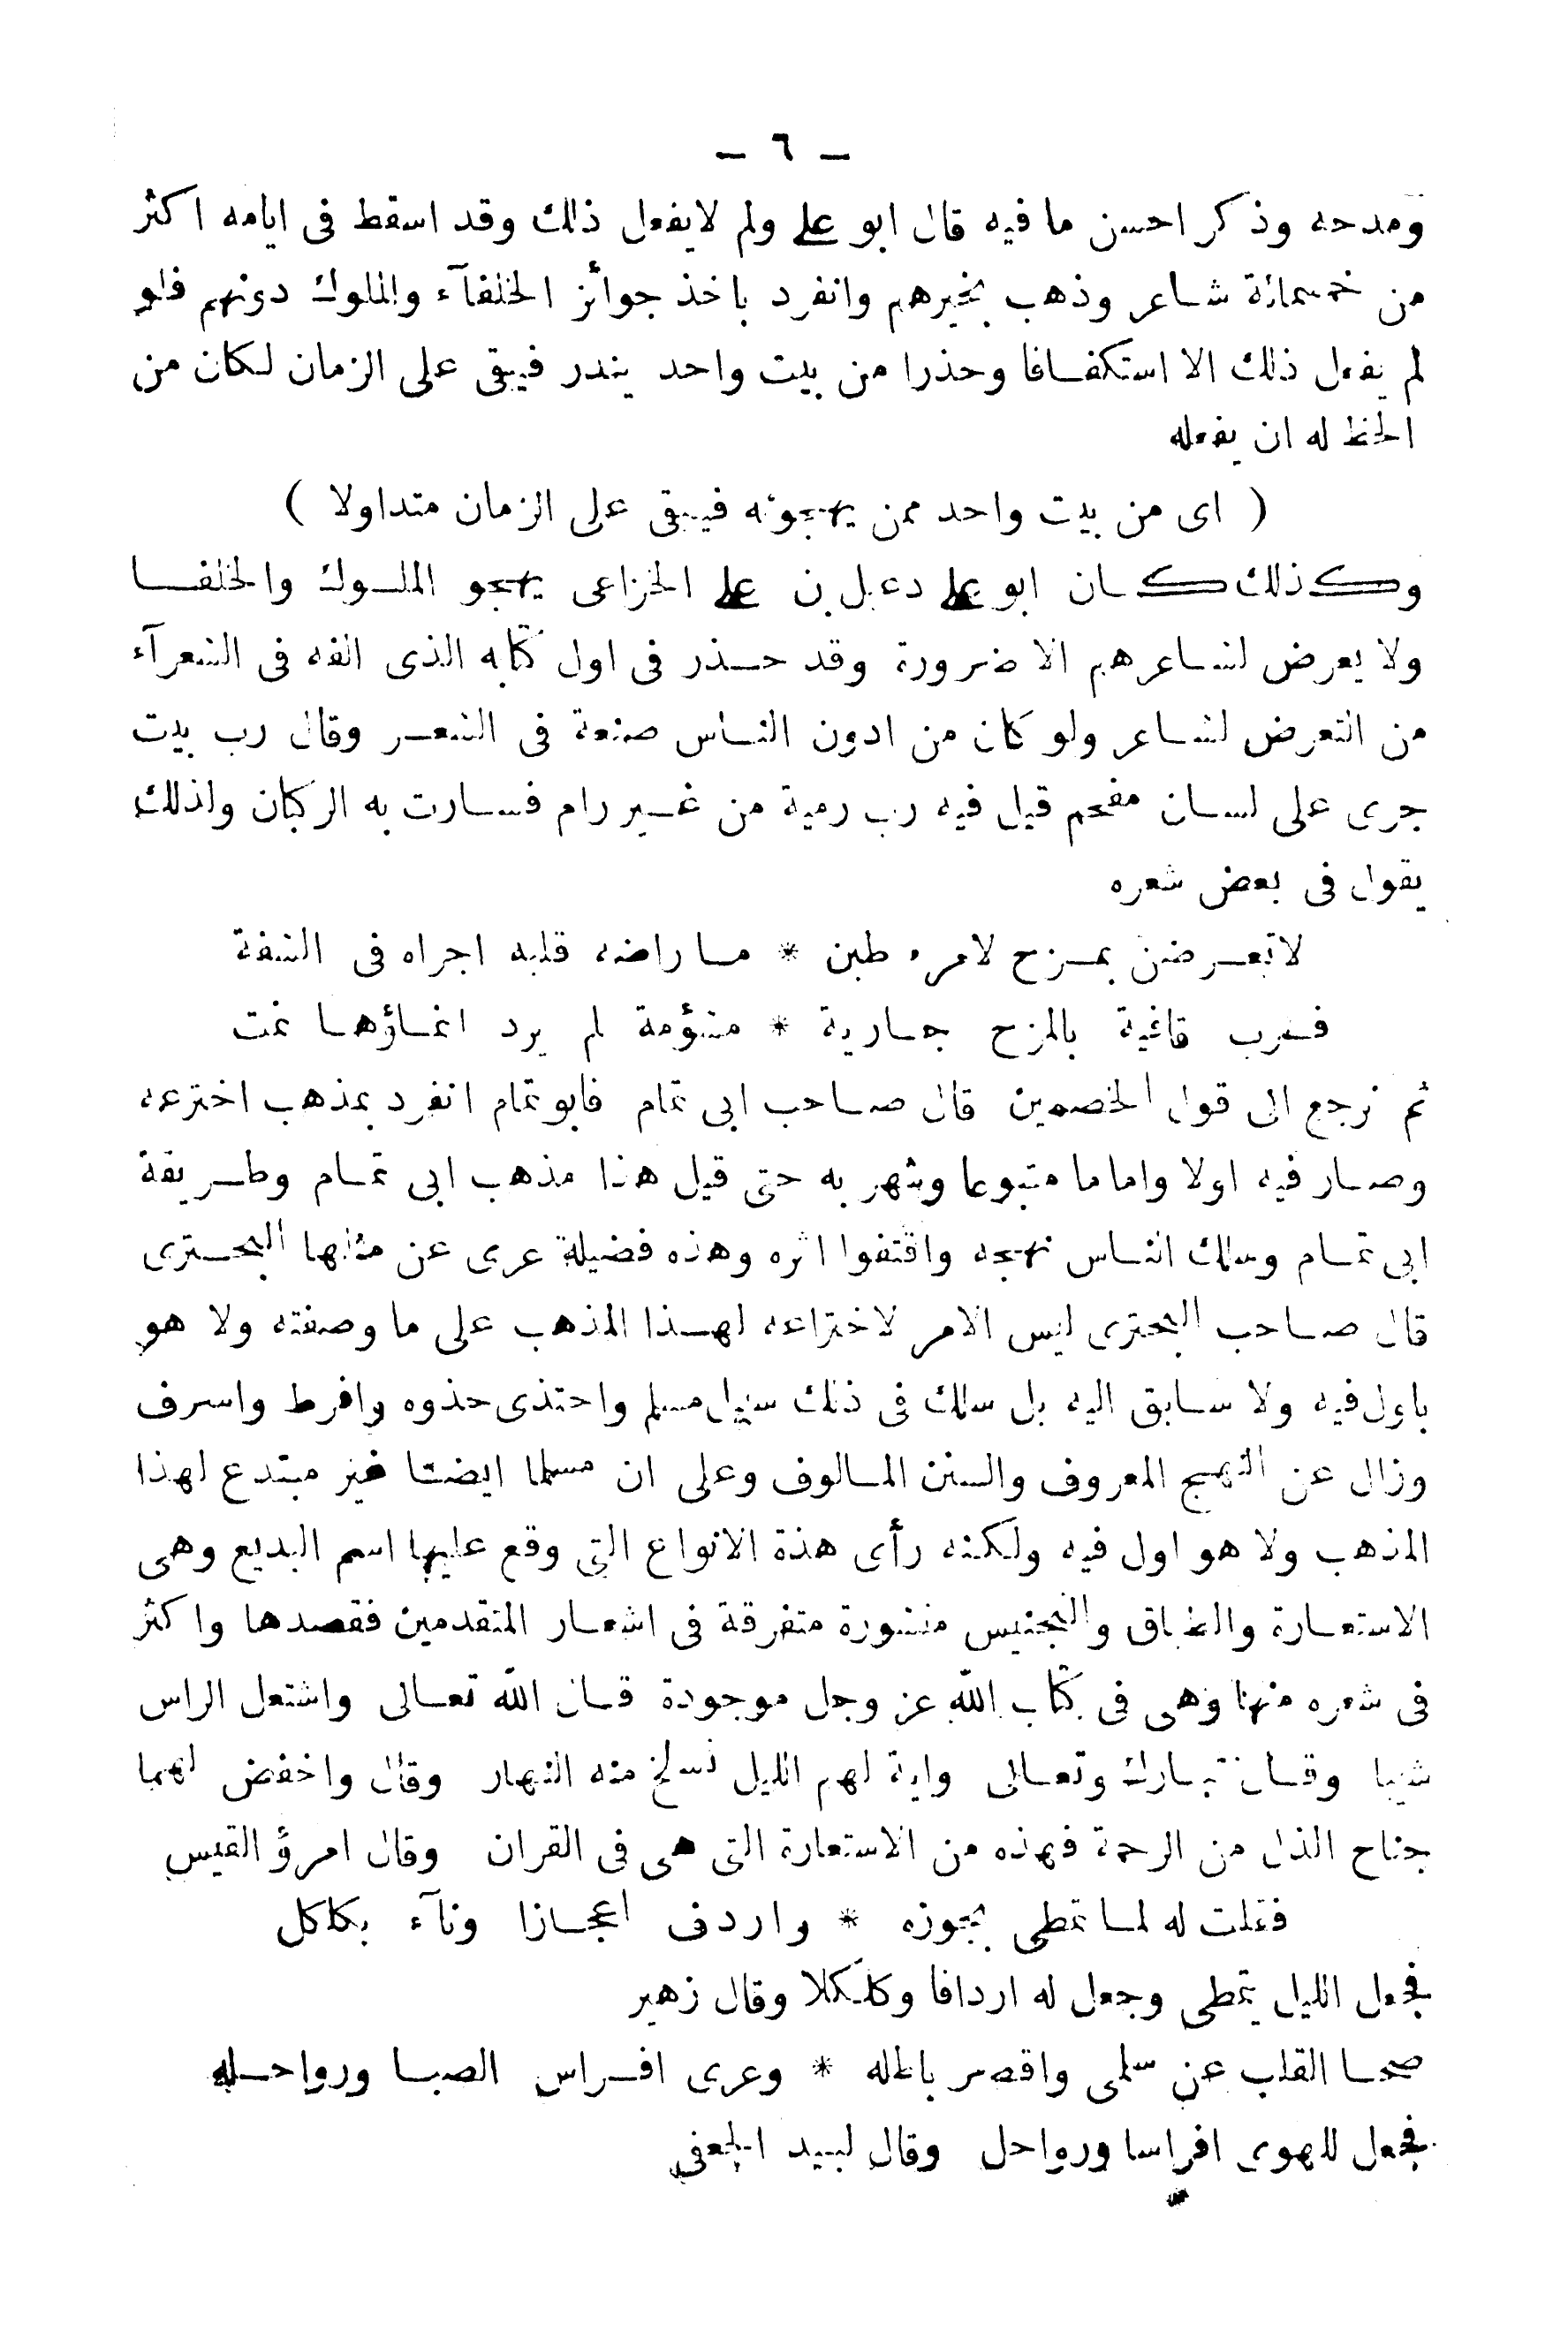 — ٦ —
ومدحه وذكر احسن ما فيه قال ابو على ولم لايفعل ذلك وقد اسقط فى ايامه اكثر
من خمسمائة شاعر وذهب بخيرهم وانفرد باخذ جوائز الخلفآء والملوك دونهم فلو
لم يفعل ذلك الا استكفافا وحذرا من بيت واحد يندر فيبقى على الزمان لكان من
الحظ له ان يفعله
( اى من بيت واحد ممن يهجونه فيبقى على الزمان متداولا )
وكذلك كان ابو على دعبل بن على الخزاعى يهجو الملوك والخلفا
ولا يعرض لشاعرهم الا ضرورة وقد حذر فى اول كتابه الذى الفه فى الشعرآء
من التعرض لشاعر ولو كان من ادون الناس صنعة فى الشعر وقال رب بيت
جرى على لسان مفحم قيل فيه رب رمية من غير رام فسارت به الركبان ولذلك
يقول فى بعض شعره
لاتعرضن بمزح لامرء طبن * ما راضه قلبه اجراه فى الشفة
فرب قافية بالمزح جارية * مشؤمة لم يرد انماؤها نمت
ثم نرجع الى قول الخصمين قال صاحب ابى تمام فابو تمام انفرد بمذهب اخترعه
وصار فيه اولا واماما متبوعا وشهر به حتى قيل هذا مذهب ابى تمام وطريقة
ابى تمام وسلك الناس نهجه واقتفوا اثره وهذه فضيلة عرى عن مثلها البحترى
قال صاحب البحترى ليس الامر لاختراعه لهذا المذهب على ما وصفته ولا هو
باول فيه ولا سابق اليه بل سلك فى ذلك سبيل مسلم واحتذى حذوه وافرط واسرف
وزال عن النهج المعروف والسنن المالوف وعلى ان مسلما ايضا غير مبتدع لهذا
المذهب ولا هو اول فيه ولكنه رأى هذة الانواع التى وقع عليها اسم البديع وهى
الاستعارة والطباق والتجنيس منثورة متفرقة فى اشعار المتقدمين فقصدها واكثر
فى شعره منها وهى فى كتاب الله عز وجل موجودة قال الله تعالى واشتعل الراس
شيبا وقال تبارك وتعالى واية لهم الليل نسلخ منه النهار وقال واخفض لهما
جناح الذل من الرحمة فهذه من الاستعارة التى هى فى القران وقال امرؤ القيس
فقلت له لما تمطى بجوزه * واردف اعجازا ونآء بكلكل
فجعل الليل يتمطى وجعل له اردافا وكلكلا وقال زهير
صحا القلب عن سلمى واقصر باطله * وعرى افراس الصبا ورواحله
فجعل للهوى افراسا ورواحل وقال لبيد الجعفى